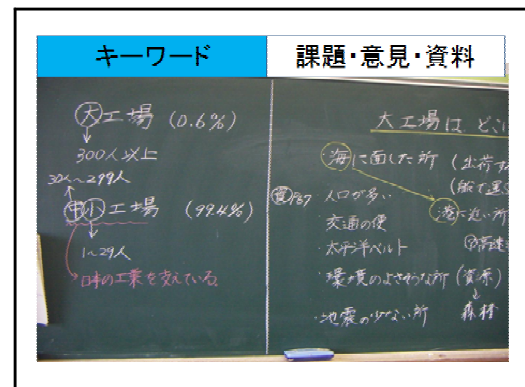 キーワード
課題・意見・資料
大工場 (0.6%)
300人以上
30人〜299人
中小工場 (99.4%)
1〜29人
日本の工業を支えている。
大工場は、どこに
海に面した所 (出荷する
(船で運
港に近い所
資P87 人口が多い
・交通の便
・太平洋ベルト
高速
・環境のよさそうな所 (資源)
森林
・地震の少ない所